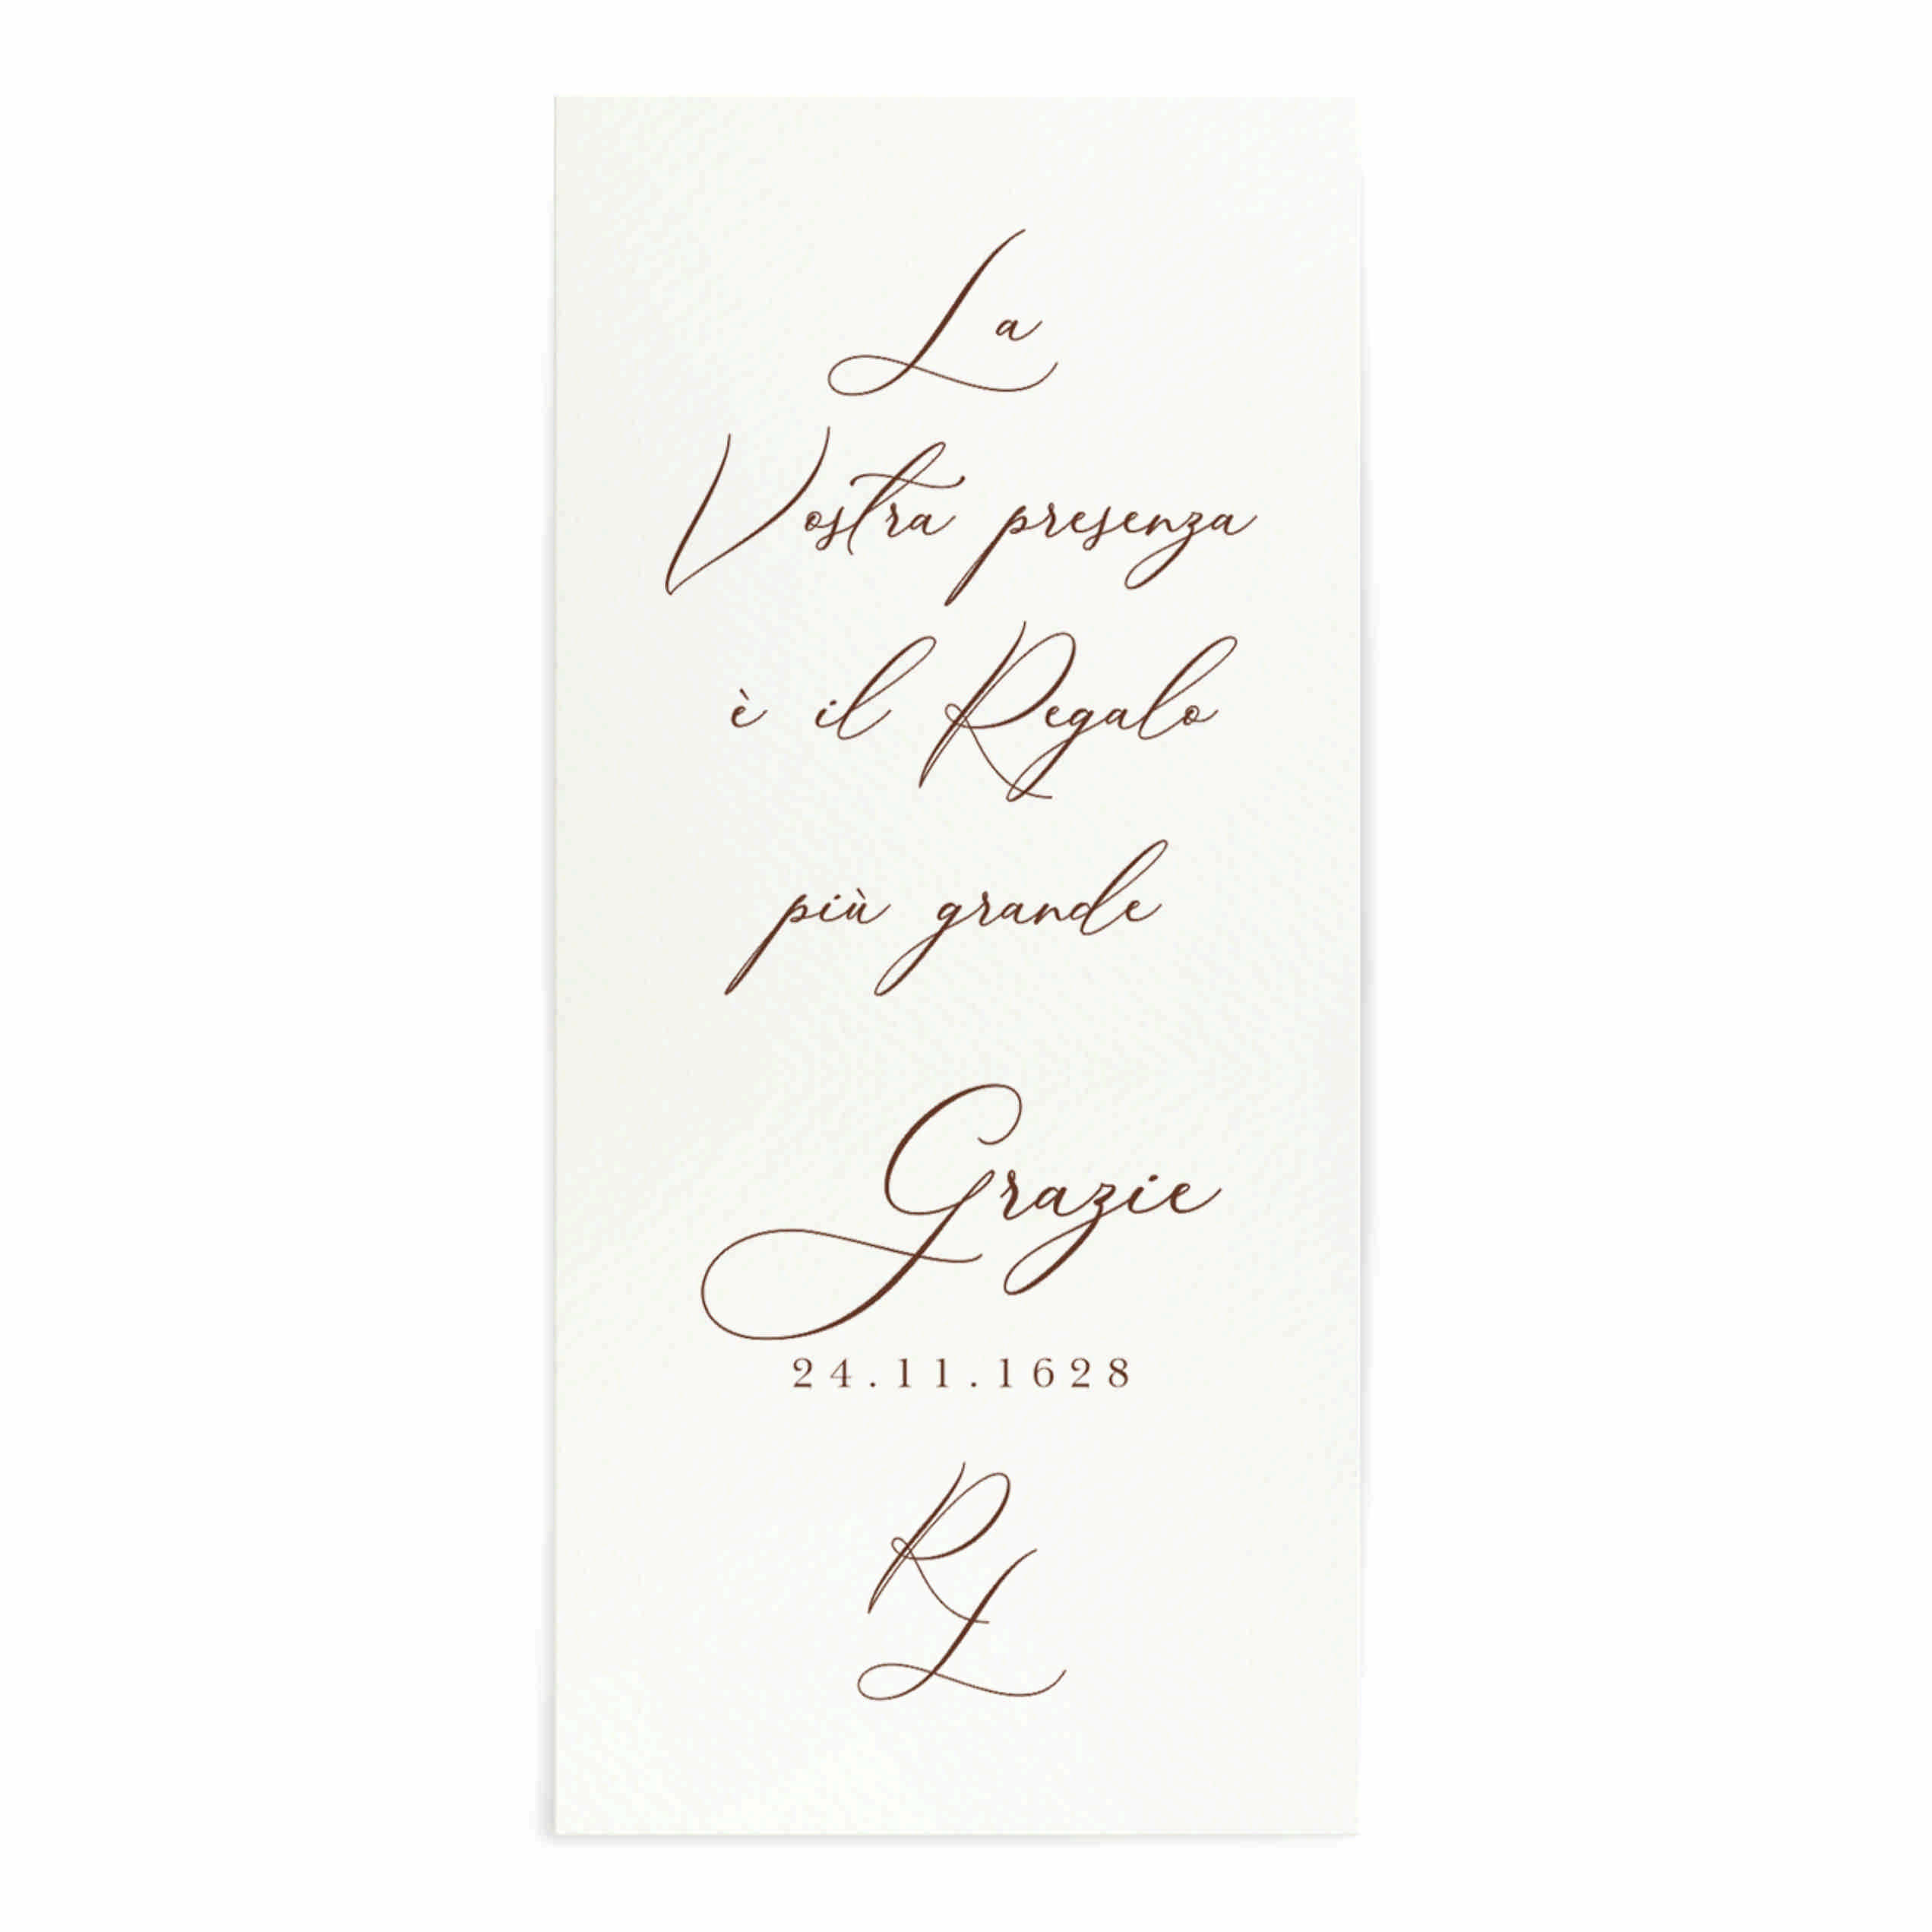 La
Vostra presenza
è il Regalo
più grande
Grazie
24.11.1628
R
L